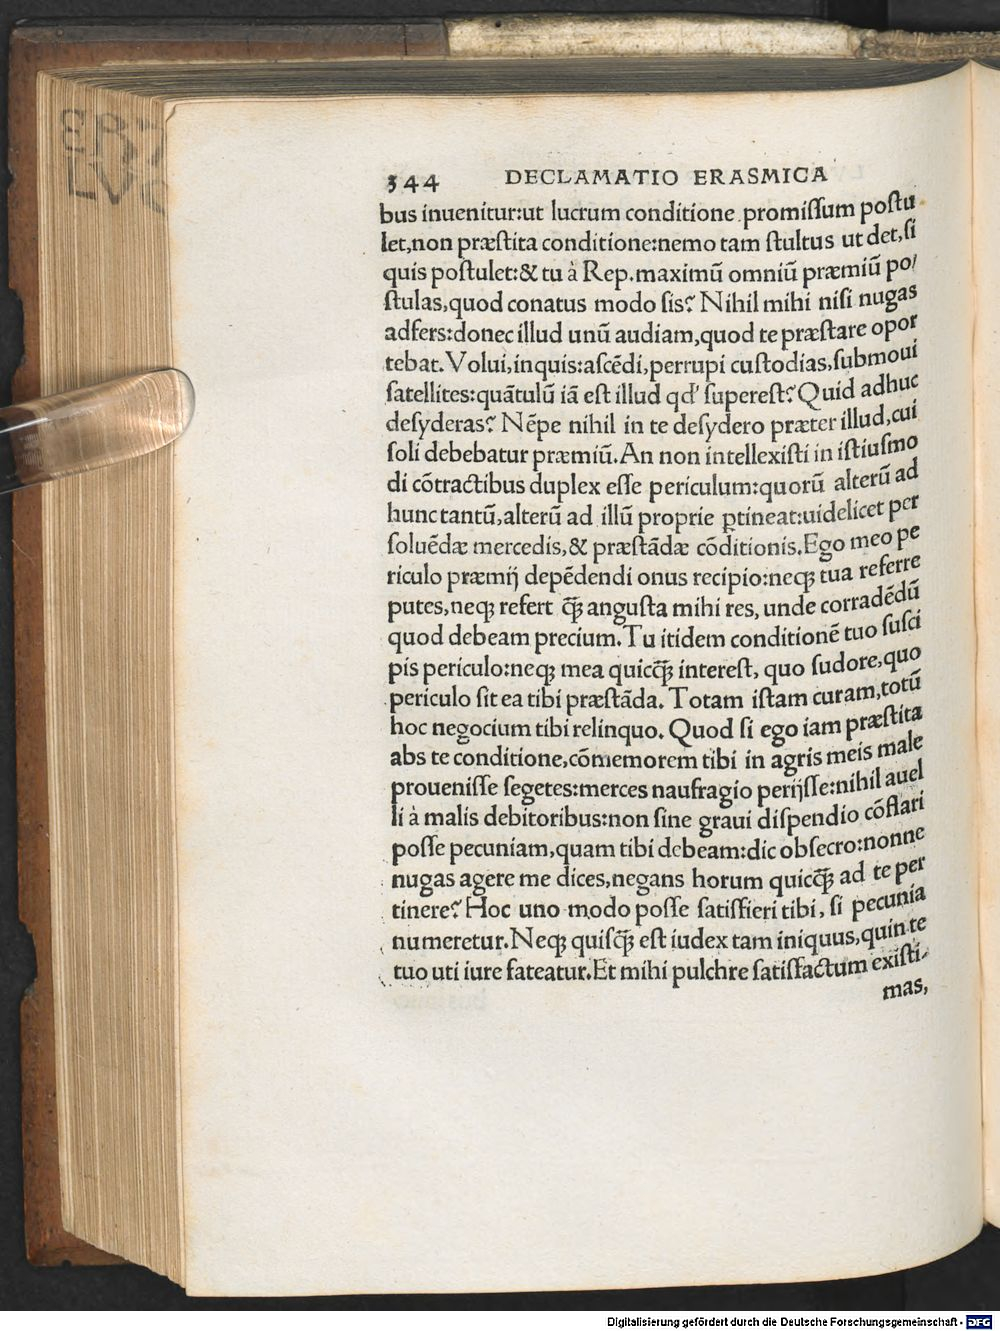 EBZ
LVC
344 DECLAMATIO ERASMICA
bus inuenitur:ut lucrum conditione promiſſum poſtu
let,non præſtita conditione:nemo tam ſtultus ut det,ſi
quis poſtulet:& tu à Rep.maximū omniū præmiū po/
ſtulas,quod conatus modo ſis? Nihil mihi niſi nugas
adfers:donec illud unū audiam,quod te præſtare opor
tebat. Volui,inquis:aſcēdi,perrupi cuſtodias,ſubmoui
ſatellites:quātulū iā eſt illud qd' ſupereſt? Quid adhuc
deſyderas? Nēpe nihil in te deſydero præter illud,cui
ſoli debebatur præmiū. An non intellexiſti in iſtiuſmo
di cōtractibus duplex eſſe periculum:quorū alterū ad
hunc tantū,alterū ad illū proprie ꝑtineat:uidelicet per
ſoluēdæ mercedis,& præſtādæ cōditionis. Ego meo pe
riculo præmij depēdendi onus recipio:neqꝫ tua referre
putes,neqꝫ refert q̄ꝫ anguſta mihi res, unde corradēdū
quod debeam precium. Tu itidem conditionē tuo ſuſci
pis periculo:neqꝫ mea quicq̄ꝫ intereſt, quo ſudore,quo
periculo ſit ea tibi præſtāda. Totam iſtam curam,totū
hoc negocium tibi relinquo. Quod ſi ego iam præſtita
abs te conditione,cōmemorem tibi in agris meis male
proueniſſe ſegetes:merces naufragio perijſſe:nihil auel
li à malis debitoribus:non ſine graui diſpendio cōflari
poſſe pecuniam,quam tibi debeam:dic obſecro:nonne
nugas agere me dices,negans horum quicq̄ꝫ ad te per
tinere? Hoc uno modo poſſe ſatiſfieri tibi, ſi pecunia
numeretur. Neqꝫ quiſq̄ꝫ eſt iudex tam iniquus,quin te
tuo uti iure fateatur. Et mihi pulchre ſatiſfactum exiſti-
mas,
Digitalisierung gefördert durch die Deutsche Forschungsgemeinschaft - DFG